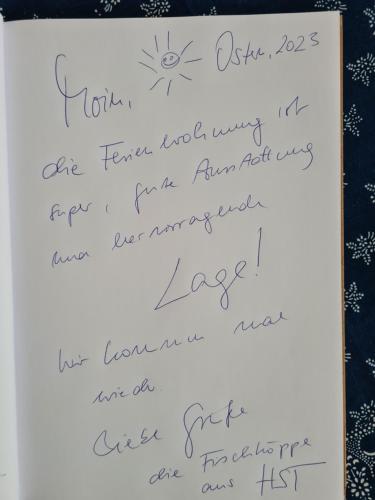 Moin, Ostern, 2023
die Ferienwohnung ist
super, gute Ausstattung
und hervorragende
Lage!
wir kommen mal
wieder.
Liebe Grüße
die Fischköppe
aus HST